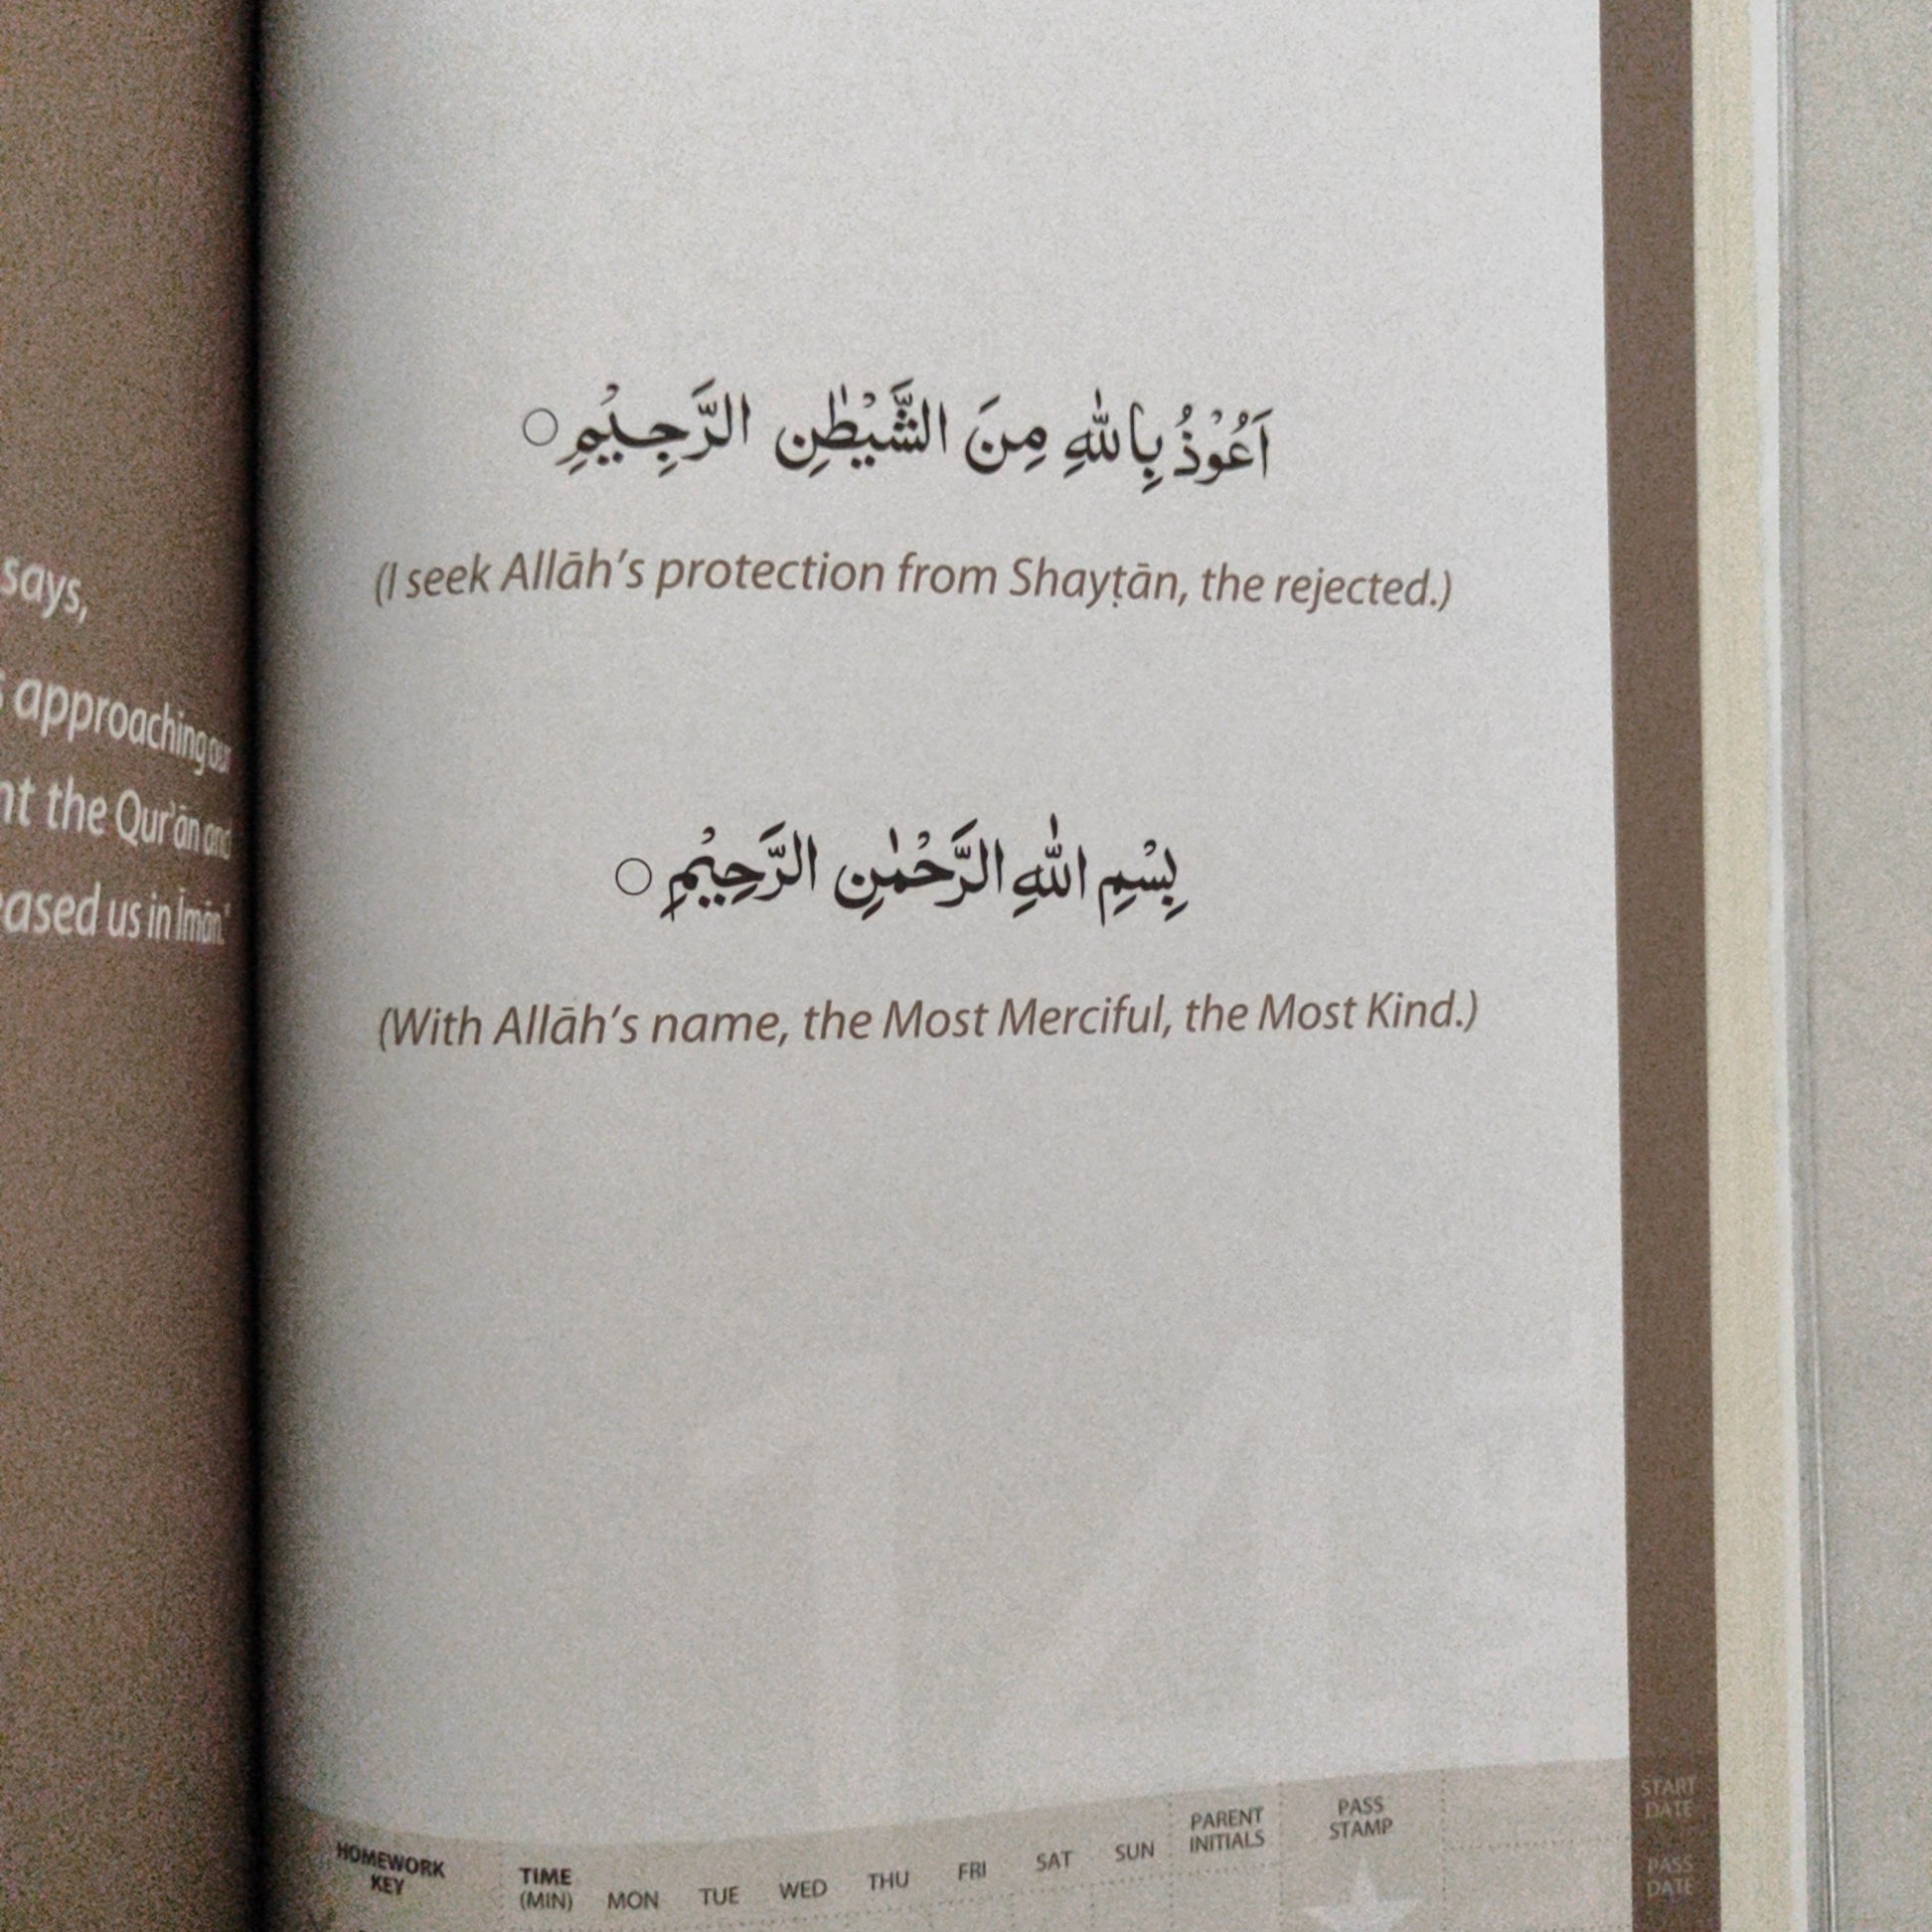 says,
approaching our
the Qur'ān and
us in Īmān."
اَعُوْذُ بِاللّٰهِ مِنَ الشَّيْطٰنِ الرَّجِيْمِ ○
(I seek Allāh's protection from Shayṭān, the rejected.)
بِسْمِ اللّٰهِ الرَّحْمٰنِ الرَّحِيْمِ ○
(With Allāh's name, the Most Merciful, the Most Kind.)
HOMEWORK KEY
TIME (MIN)
MON TUE WED THU FRI SAT SUN
PARENT INITIALS
PASS STAMP
START DATE
PASS DATE